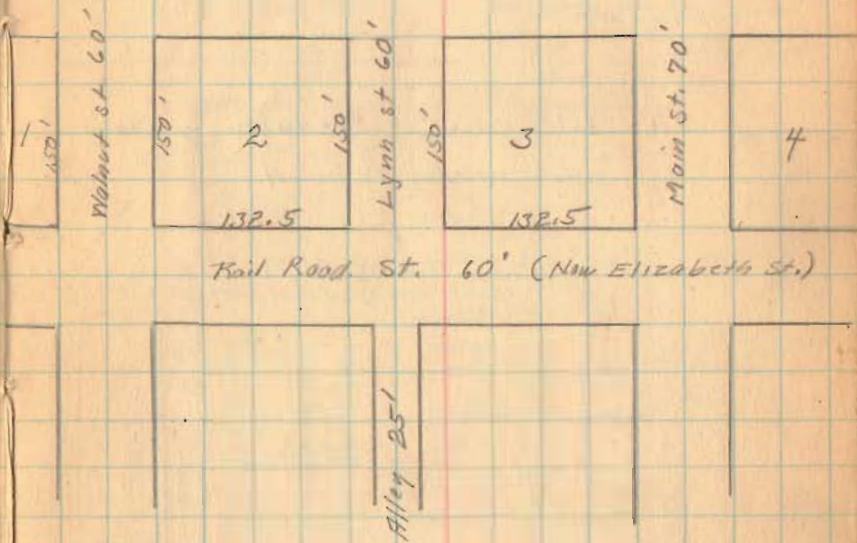 1
150'
Walnut st 60'
150'
2
150'
132.5
Lynn st 60'
150'
3
132.5
Main St. 70'
4
Rail Road St. 60' (Now Elizabeth St.)
Alley 25'